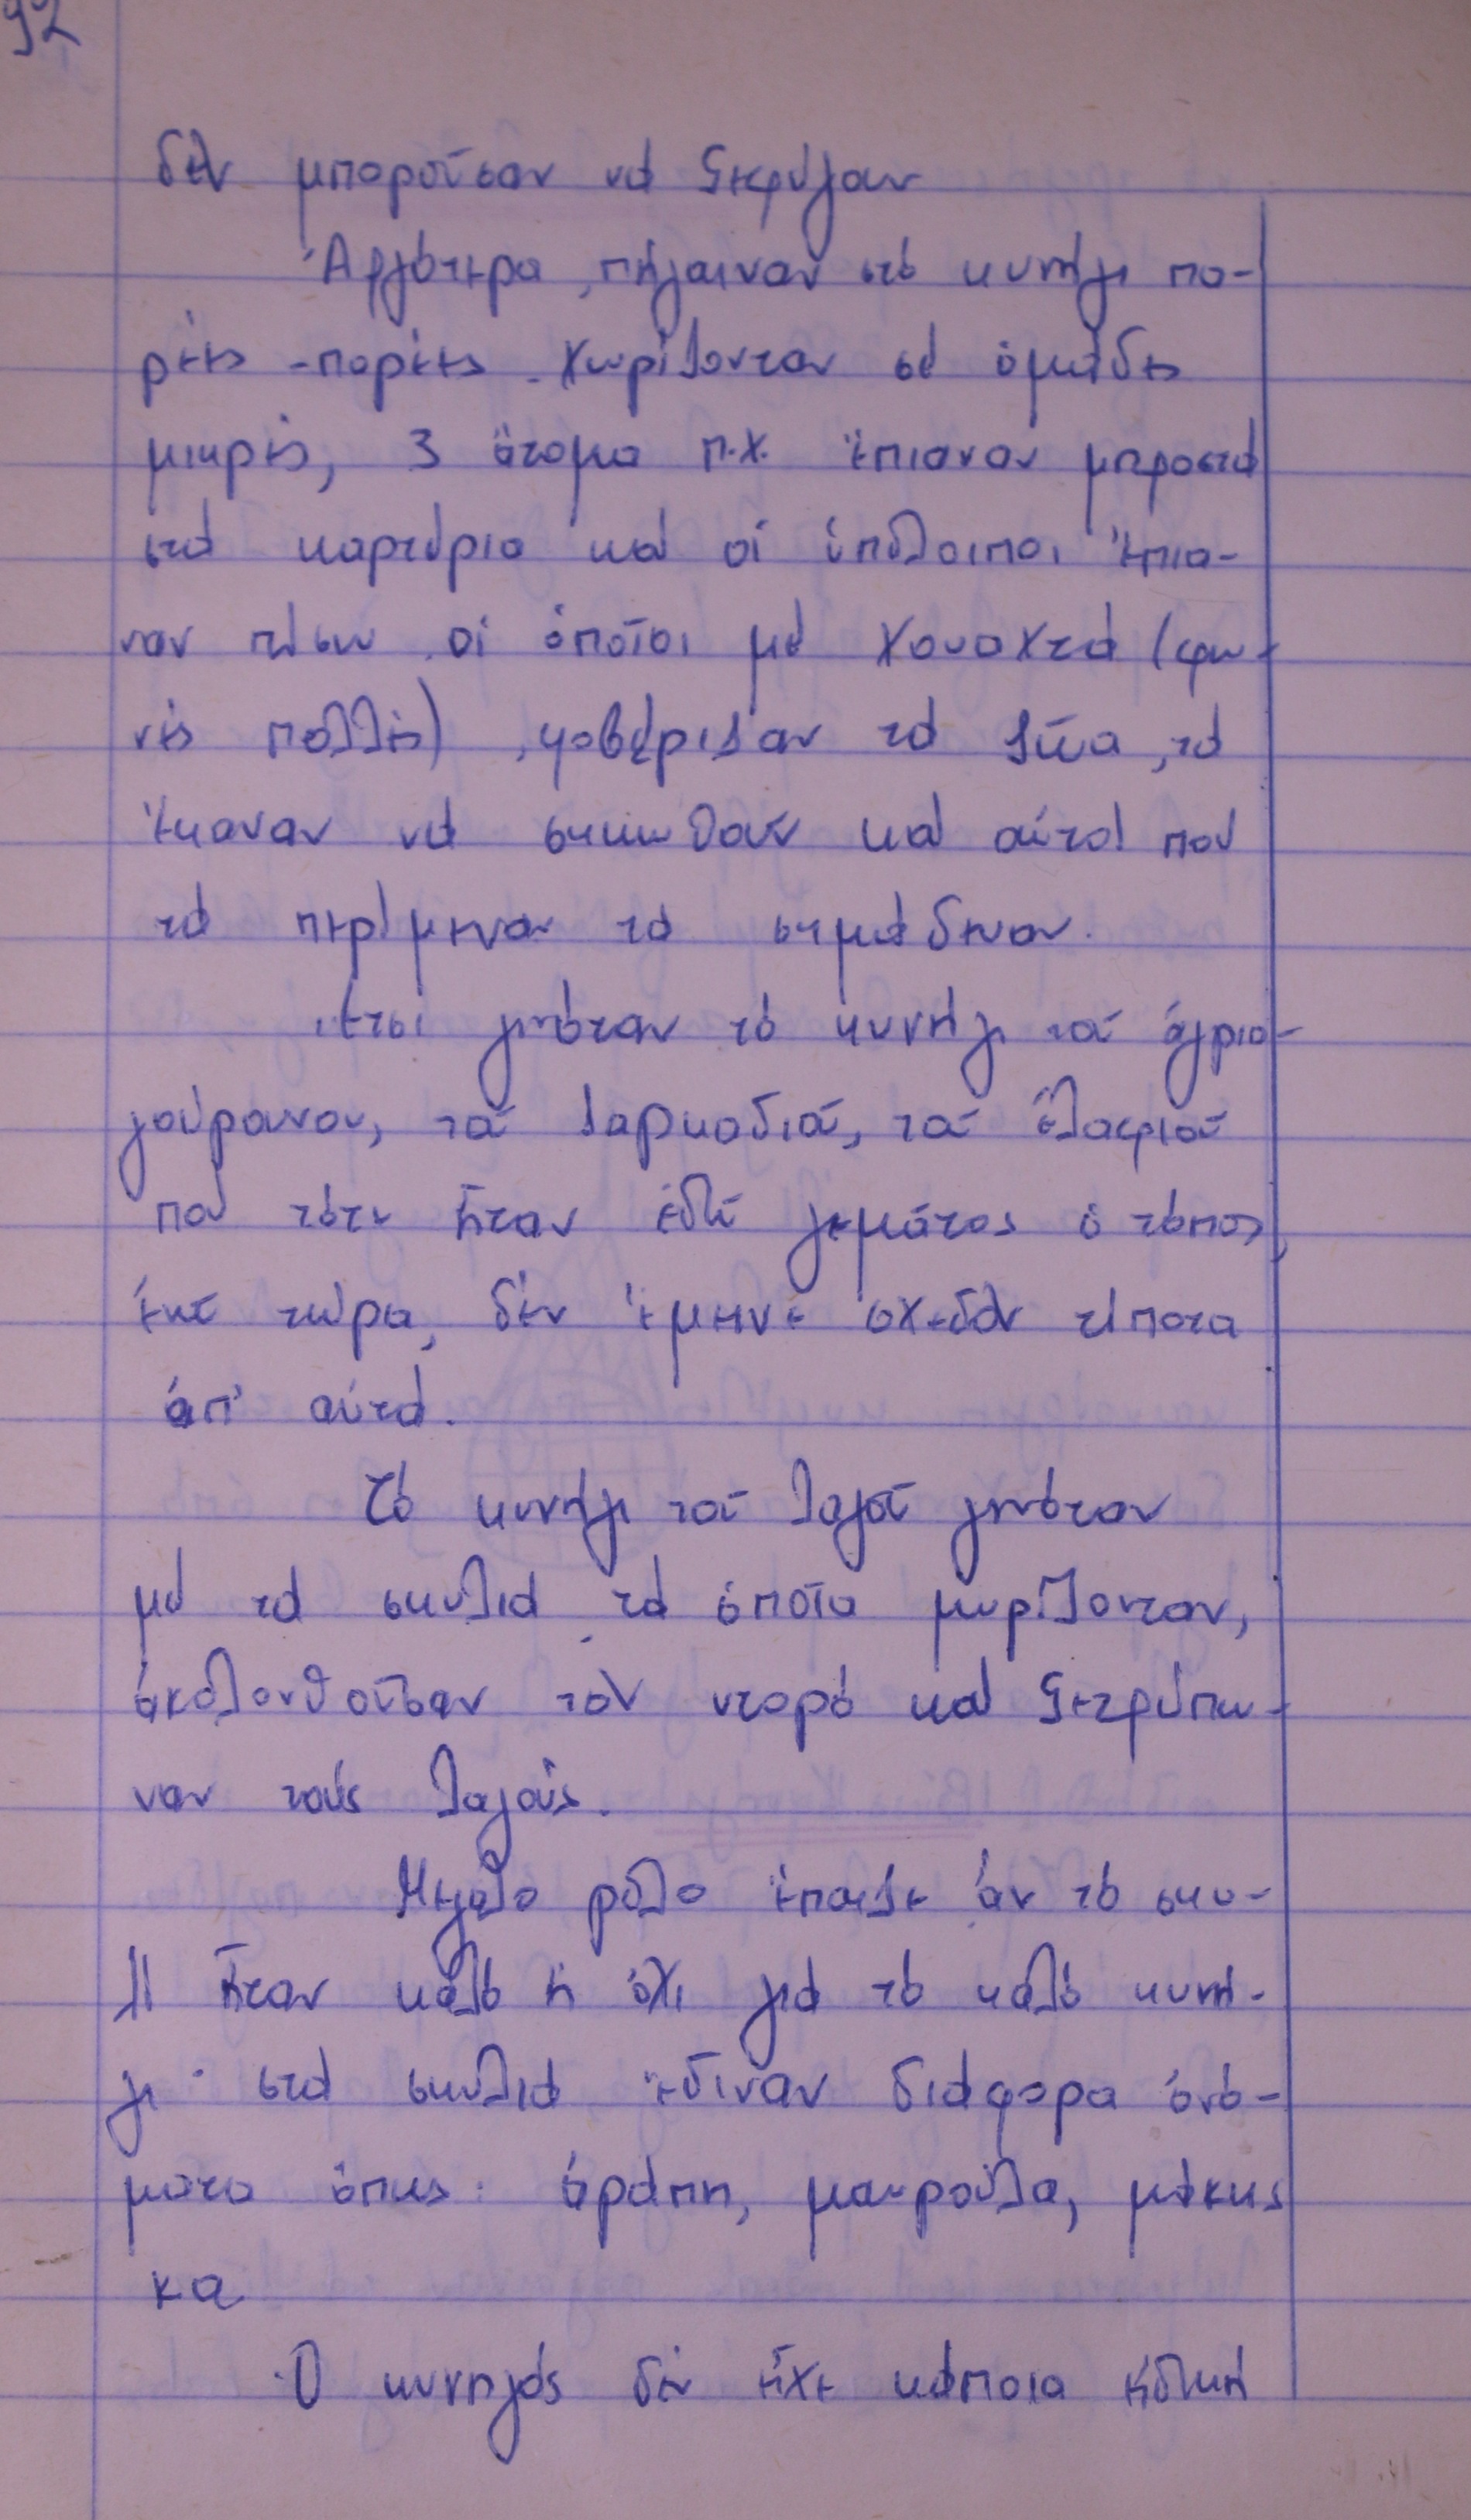 92
δέν μποροῦσαν νά ξεφύγουν
Ἀργότερα, πήγαιναν στό κυνήγι πα-
ρέες - παρέες. Χωρίζονταν σέ ὁμάδες
μικρές, 3 ἄτομα π.χ. ἔπιαναν μπροστά
στά καρτέρια καί οἱ ὑπόλοιποι ἔπια-
ναν πίσω, οἱ ὁποῖοι μέ χουαχτά (φω-
νές πολλές), φοβέριζαν τά ζῶα, τά
ἔκαναν νά σηκωθοῦν καί αὐτοί πού
τά περίμεναν τά σημάδευαν.
Ἔτσι γινόταν τό κυνήγι τοῦ ἀγριο-
γούρουνου, τοῦ ζαρκαδιοῦ, τοῦ ἐλαφιοῦ
πού τότε ἦταν ἐδῶ γεμάτος ὁ τόπος,
ἐνῶ τώρα, δέν ἔμεινε σχεδόν τίποτα
ἀπ' αὐτά.
Τό κυνήγι τοῦ λαγοῦ γινόταν
μέ τά σκυλιά τά ὁποῖα μυρίζονταν,
ἀκολουθοῦσαν τόν ντορό καί ξετρύπω-
ναν τούς λαγούς.
Μεγάλο ρόλο ἔπαιζε ἄν τό σκυ-
λί ἦταν καλό ἤ ὄχι γιά τό καλό κυνή-
γι· στά σκυλιά ἔδιναν διάφορα ὀνό-
ματα ὅπως: ἀράπη, μαυρούλα, μάκης
κα
Ὁ κυνηγός δέν εἶχε κάποια εἰδική